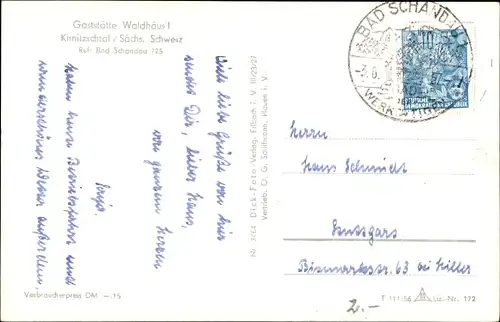 Gaststätte Waldhäus'l
Kirnitzschtal / Sächs. Schweiz
Ruf: Bad Schandau 725
Viele liebe Grüße von hier
sendet Dir, lieber Hans,
von ganzem Herzen
Anja.
haben heute Betriebsfahrt und
wunderschönes Wetter außerdem.
Verbraucherpreis DM —.15
Nr. 3464 Dick-Foto-Verlag, Erlbach i. V. III/23/27
Vertrieb: D. G. Saalfrank, Plauen i. V.
BAD SCHANDAU
10
DEUTSCHE
DEMOKRATISCHE REPUBLIK
Herrn
Hans Schmidt
Stuttgart
Bismarckstr. 63 bei Hiller
T 111/56 Liz.-Nr. 172
2.-